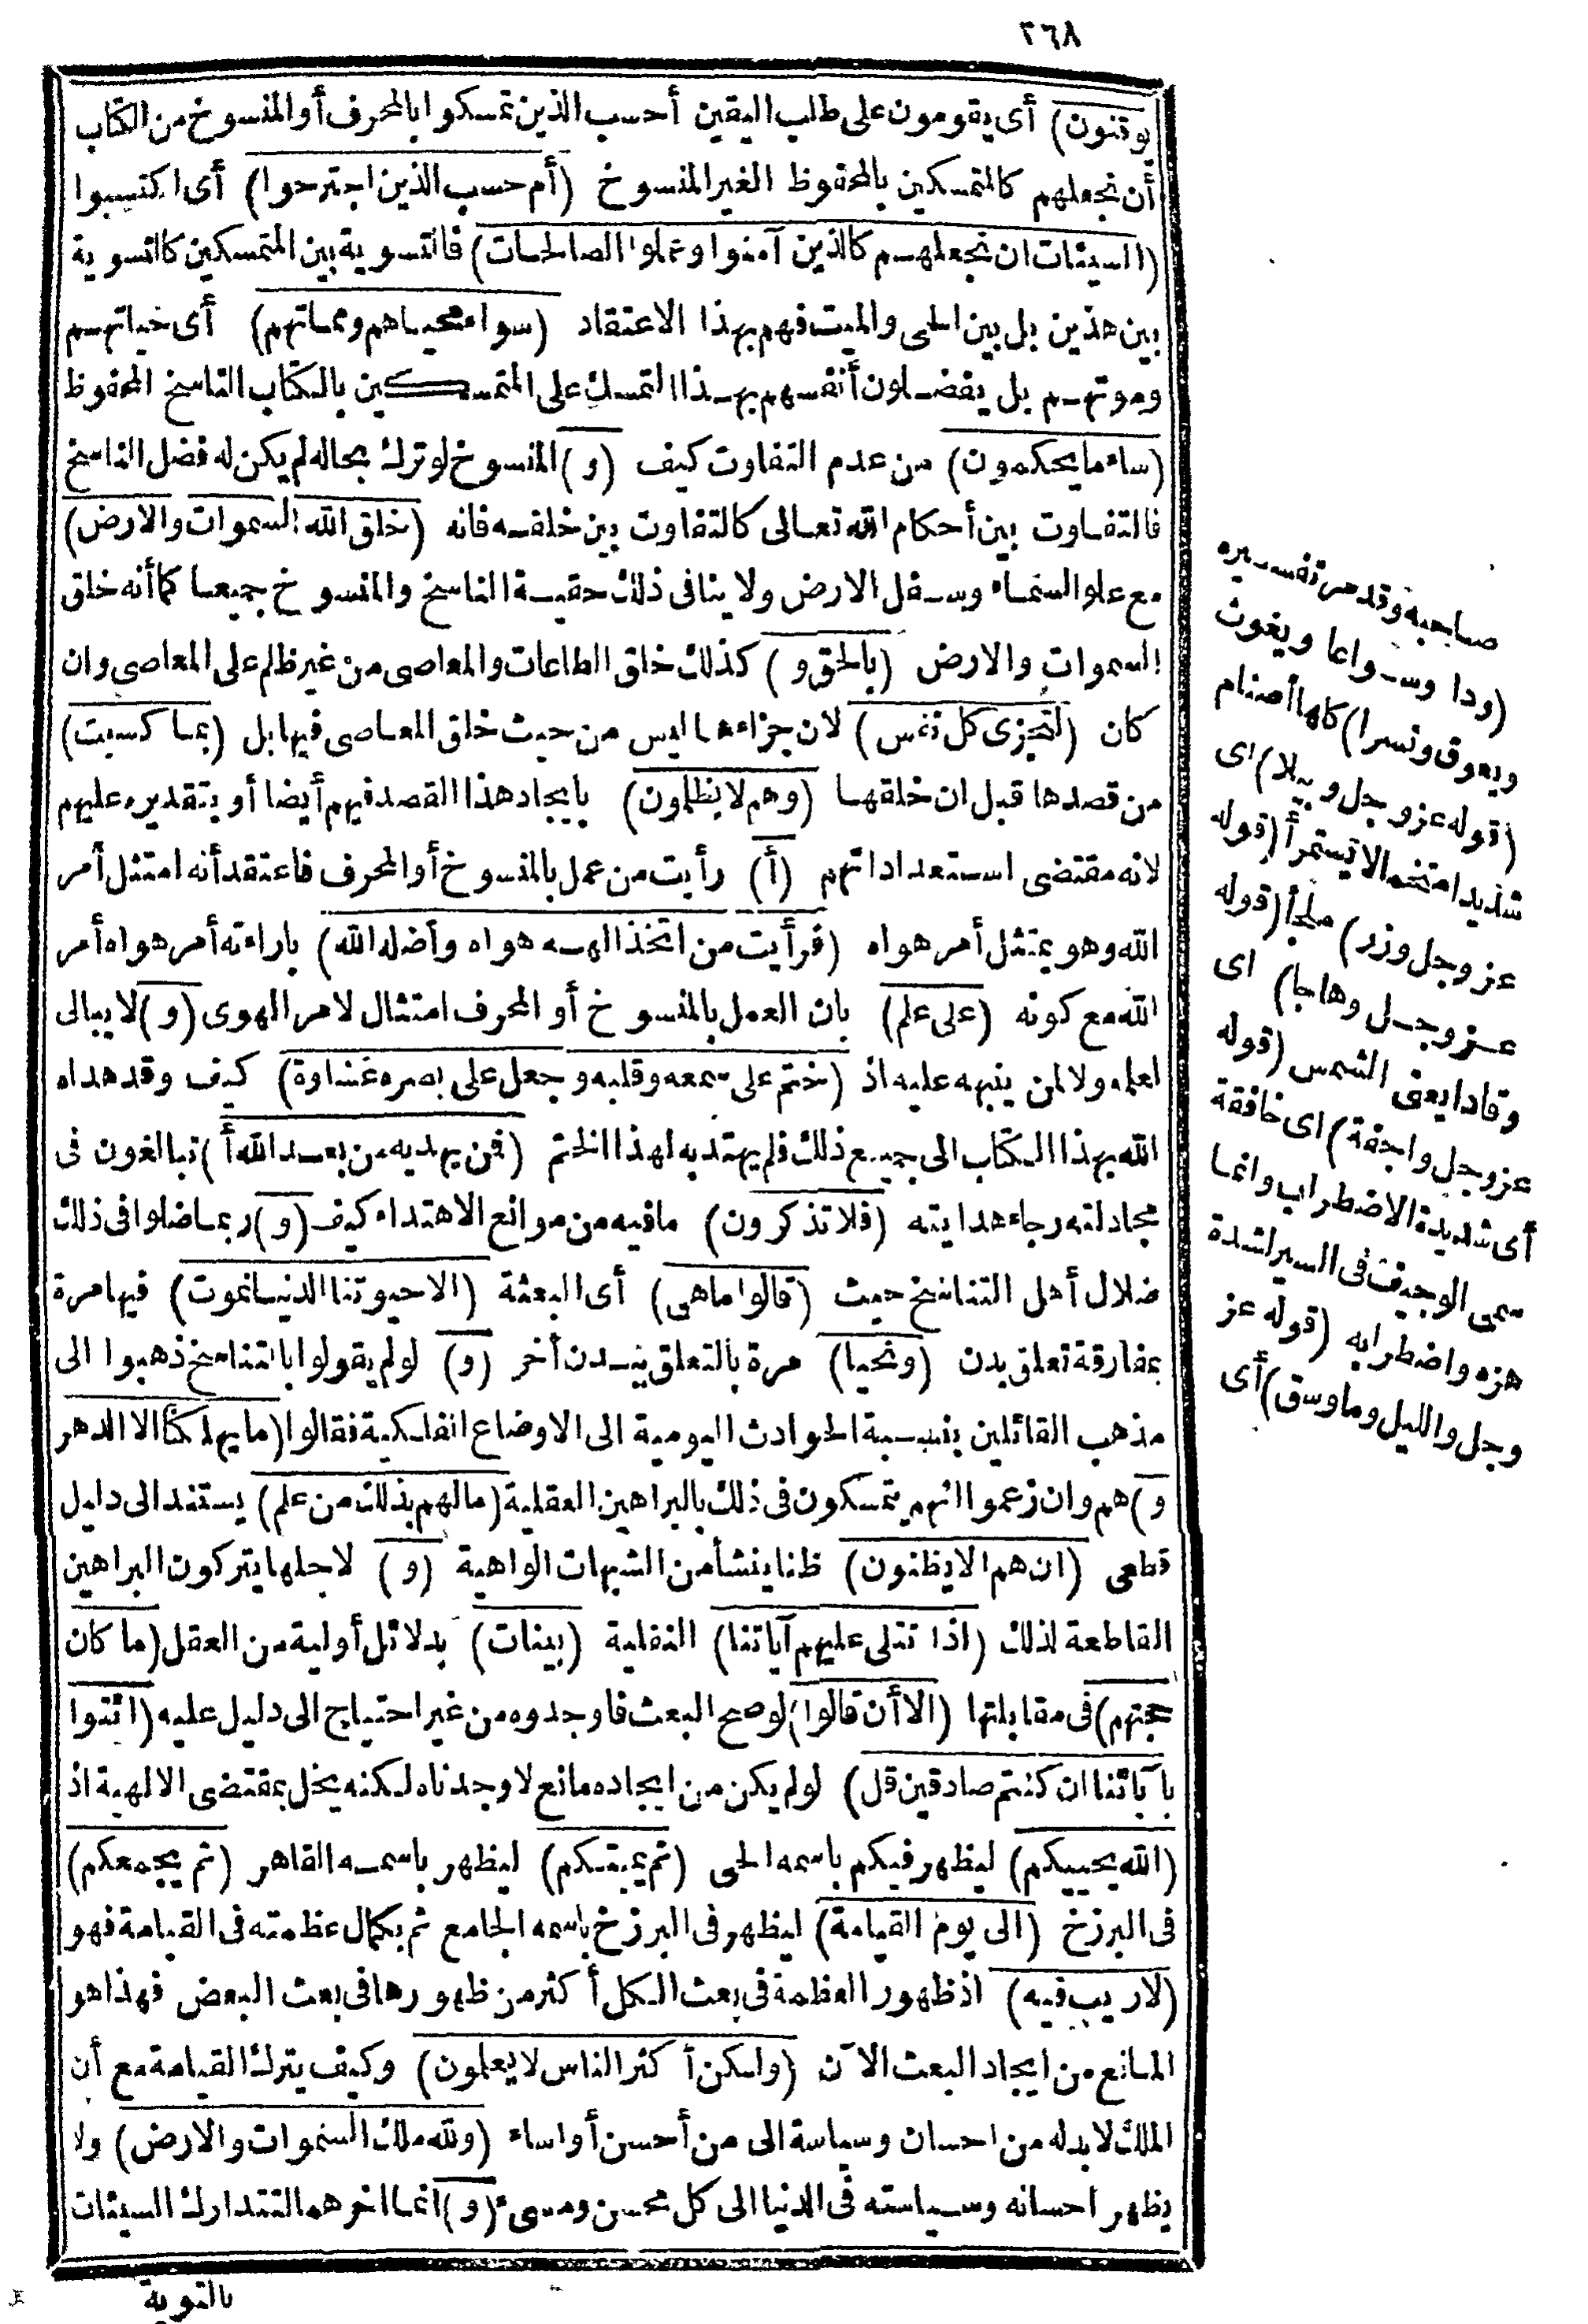 ٢٦٨
يوقنون) أى يقومون على طلب اليقين أحسب الذين تمسكوا بالمحرف أو المنسوخ من الكتاب
أن نجعلهم كالمتمسكين بالمحفوظ الغير المنسوخ (أم حسب الذين اجترحوا) أى اكتسبوا
(السيئات ان نجعلهم كالذين آمنوا وعملوا الصالحات) فالتسوية بين المتمسكين كالتسوية
بين هذين بل بين الحى والميت فهم بهذا الاعتقاد (سواء محياهم ومماتهم) أى حياتهم
وموتهم بل يفضلون أنفسهم بهذا التمسك على المتمسكين بالكتاب الناسخ المحفوظ
(ساء ما يحكمون) من عدم التفاوت كيف (و) المنسوخ لو ترك بحاله لم يكن له فضل الناسخ
فالتفاوت بين أحكام الله تعالى كالتفاوت بين خلقه فانه (خلق الله السموات والارض)
مع علو السماء وسفل الارض ولا ينافى ذلك حقية الناسخ والمنسوخ جميعا كما أنه خلق
السموات والارض (بالحق و) كذلك خلق الطاعات والمعاصى من غير ظلم على المعاصى وان
كان (لتجزى كل نفس) لان جزاءها ليس من حيث خلق المعاصى فيها بل (بما كسبت)
من قصدها قبل ان خلقها (وهم لا يظلمون) بايجاد هذا القصد فيهم أيضا أو بتقديره عليهم
لانه مقتضى استعداداتهم (أ) رأيت من عمل بالمنسوخ أو المحرف فاعتقد أنه امتثل أمر
الله وهو يمتثل أمر هواه (فرأيت من اتخذ الهه هواه وأضله الله) باراءته أمر هواه أمر
الله مع كونه (على علم) بان العمل بالمنسوخ أو المحرف امتثال لامر الهوى (و) لا يبالى
لعلمه ولا لمن ينبهه عليه اذ (ختم على سمعه وقلبه وجعل على بصره غشاوة) كيف وقد هداه
الله بهذا الكتاب الى جميع ذلك فلم يهتد به لهذا الختم (فمن يهديه من بعد الله أ) تبالغون فى
مجادلته رجاء هدايته (فلا تذكرون) ما فيه من موانع الاهتداء كيف (و) ربما ضلوا فى ذلك
ضلال أهل التناسخ حيث (قالوا ما هى) أى البعثة (الا حيوتنا الدنيا نموت) فيها مرة
بمفارقة تعلق بدن (ونحيا) مرة بالتعلق ببدن أخر (و) لو لم يقولوا بالتناسخ ذهبوا الى
مذهب القائلين بنسبة الحوادث اليومية الى الاوضاع الفلكية فقالوا (ما يهلكنا الا الدهر
و) هم وان زعموا انهم يتمسكون فى ذلك بالبراهين العقلية (ما لهم بذلك من علم) يستند الى دليل
قطعى (ان هم الا يظنون) ظنا ينشأ من الشبهات الواهية (و) لاجلها يتركون البراهين
القاطعة لذلك (اذا تتلى عليهم آياتنا) النقلية (بينات) بدلائل أولية من العقل (ما كان
حجتهم) فى مقابلتها (الا أن قالوا) لو صح البعث فاوجدوه من غير احتياج الى دليل عليه (ائتوا
بآبائنا ان كنتم صادقين قل) لو لم يكن من ايجاده مانع لاوجدناه لكنه يخل بمقتضى الالهية اذ
(الله يحييكم) ليظهر فيكم باسمه الحى (ثم يميتكم) ليظهر باسمه القاهر (ثم يجمعكم)
فى البرزخ (الى يوم القيامة) ليظهر فى البرزخ باسمه الجامع ثم بكمال عظمته فى القيامة فهو
(لا ريب فيه) اذ ظهور العظمة فى بعث الكل أكثر من ظهورها فى بعث البعض فهذا هو
المانع من ايجاد البعث الآن (ولكن أكثر الناس لا يعلمون) وكيف يترك القيامة مع أن
الملك لا بد له من احسان وسياسة الى من أحسن أو اساء (ولله ملك السموات والارض) ولا
يظهر احسانه وسياسته فى الدنيا الى كل محسن ومسىء (و) انما اخرهما لتتدارك السيئات
بالتوبة
صاحبه وقد مر تفسيره
(ودا وسواعا ويغوث
ويعوق ونسرا) كلها أصنام
(قوله عز وجل وبيلا) اى
شديدا متخما لا يستمرأ (قوله
عز وجل وزر) ملجأ (قوله
عز وجل وهاجا) اى
وقادا يعنى الشمس (قوله
عز وجل واجفة) اى خافقة
أى شديدة الاضطراب وانما
سمى الوجيف فى السير لشدة
هزه واضطرابه (قوله عز
وجل والليل وما وسق) أى